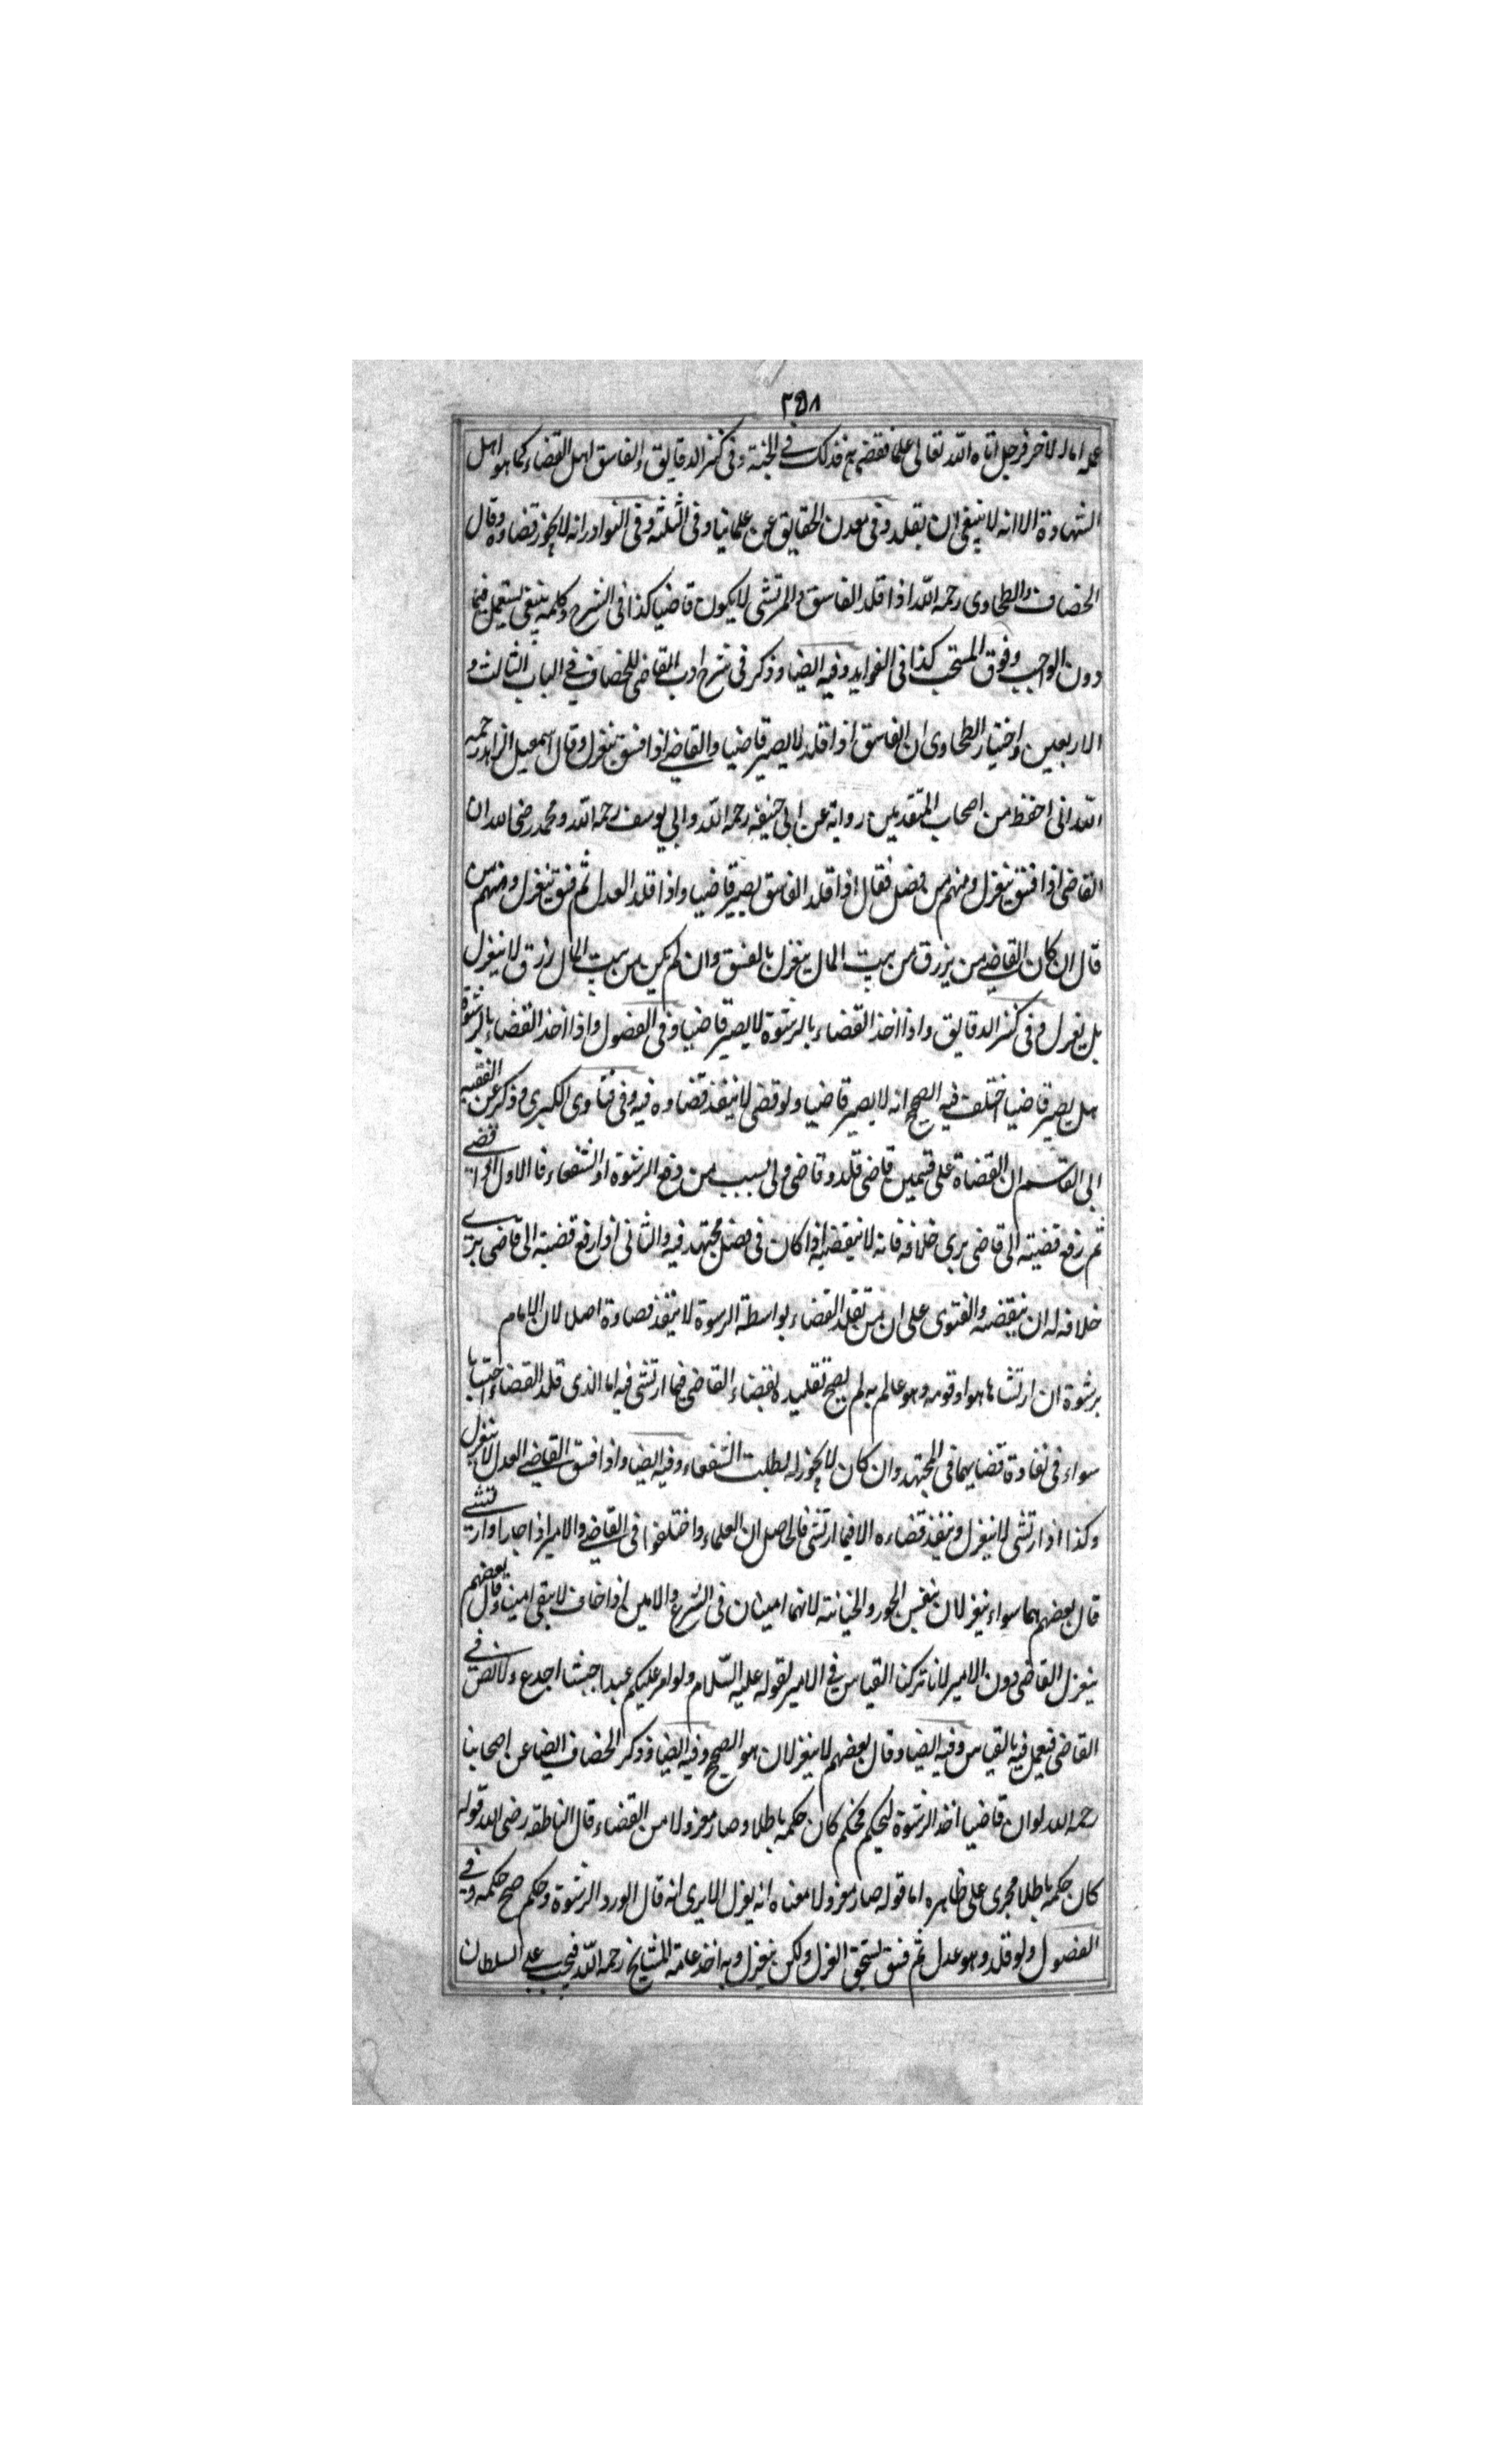 ٣٥٨
علمه اما الاخر فرجل اتاه الله تعالى علما فقضى به فذلك في الجنة وفى كنز الدقايق والفاسق اهل القضاء كما هو اهل
الشهادة الا انه لا ينبغى ان يقلد وفى معدن الحقايق عن علمائنا وفى الثلثة وفى النوادر انه لا يجوز قضاوه وقال
الخصاف والطحاوى رحمه الله اذا قلد الفاسق والمرتشى لا يكون قاضيا كذا فى الشرح وكلمه ينبغى يستعمل فيما
دون الواجب وفوق المستحب كذا فى الفوايد وفيه ايضا وذكر فى شرح ادب القاضى للخصاف في الباب الثالث و
الاربعين واختيار الطحاوى ان الفاسق اذا قلد لا يصير قاضيا والقاضے اذا فسق ينعزل وقال اسمعيل الزاهد رحمه
الله انى احفظ من اصحاب المتقدمين رواية عن ابى حنيفه رحمه الله وابي يوسف رحمه الله ومحمد رضى الله ان
القاضى اذا فسق ينعزل ومنهم من فصل فقال اذا قلد الفاسق يصير قاضيا واذا قلد العدل ثم فسق ينعزل ومنهم من
قال ان كان القاضے من يرزق من بيت المال ينعزل بالفسق وان لم يكن من بيت المال رزق لا ينعزل
بل يعزل وفى كنز الدقايق واذا اخذ القضاء بالرشوة لا يصير قاضيا وفى الفصول واذا اخذ القضاء بالرشوة
هل يصير قاضيا اختلف فيه الصحيح انه لا يصير قاضيا ولو قضى لا ينفذ قضاوه فيه وفى فتاوى الكبرى وذكر عن الفقيه
ابى القاسم ان القضاة على قسمين قاضى قلد وقاضى ولى بسبب من دفع الرشوة او الشفعاء فالاول اذا قضے
ثم رفع قضيته الى قاضى يرى خلافه فانه لا ينقضه اذا كان فى فصل مجتهد فيه والثانى اذا رفع قضيته الى قاضى يرے
خلافه له ان ينقضه والفتوى على ان من تقلد القضاء بواسطة الرسوة لا ينفذ قضاوة اصلا لان الامام
برشوة ان ارتشاها هو او قومه وهو عالم به لم يصح تقليده بقضاء القاضى فيما ارتشى فيه اما الذى قلد القضاء احتسابا
سواء فى نفاوة قضايهما فى المجتهد وان كان لا يجوز له لطلب الشفعاء وفيه ايضا واذا فسق القاضے العدل لا ينعزل
وكذا اذا ارتشى لا ينعزل وينفذ قضاءه الا فيما ارتشى فالحاصل ان العلماء واختلفوا فى القاضے والامير اذا جار او ارتشے
قال بعضهم هما سواء ينعزلان بنفس الجور والخيانة لانهما امينان فى الشرع والامين اذا خاف لا يبقى امينا وقال بعضهم
ينعزل القاضى دون الامير لانا تركنا القياس في الامير لقوله عليه السلام ولو امر عليكم عبدا حبشا اجدع ولا نص فے
القاضى فيعمل فيه بالقياس وفيه ايضا وقال بعضهم لا ينعزلان هو الصحيح وفيه ايضا وذكر الخصاف ايضا عن اصحابنا
رحمه الله لو ان قاضيا اخذ الرشوة ليحكم فحكم كان حكمه باطلا وصار معزولا من القضاء قال الناطقه رضى الله قوله
كان حكمه باطلا مجرى على ظاهره اما قوله صار معزولا معناه انه يعزل الا يرى انه قال لو رد الرشوة وحكم صح حكمه وفے
الفصول ولو قلد وهو عدل ثم فسق يستحق العزل ولكن ينعزل وبه اخذ عامة المشايخ رحمه الله فيجب على السلطان